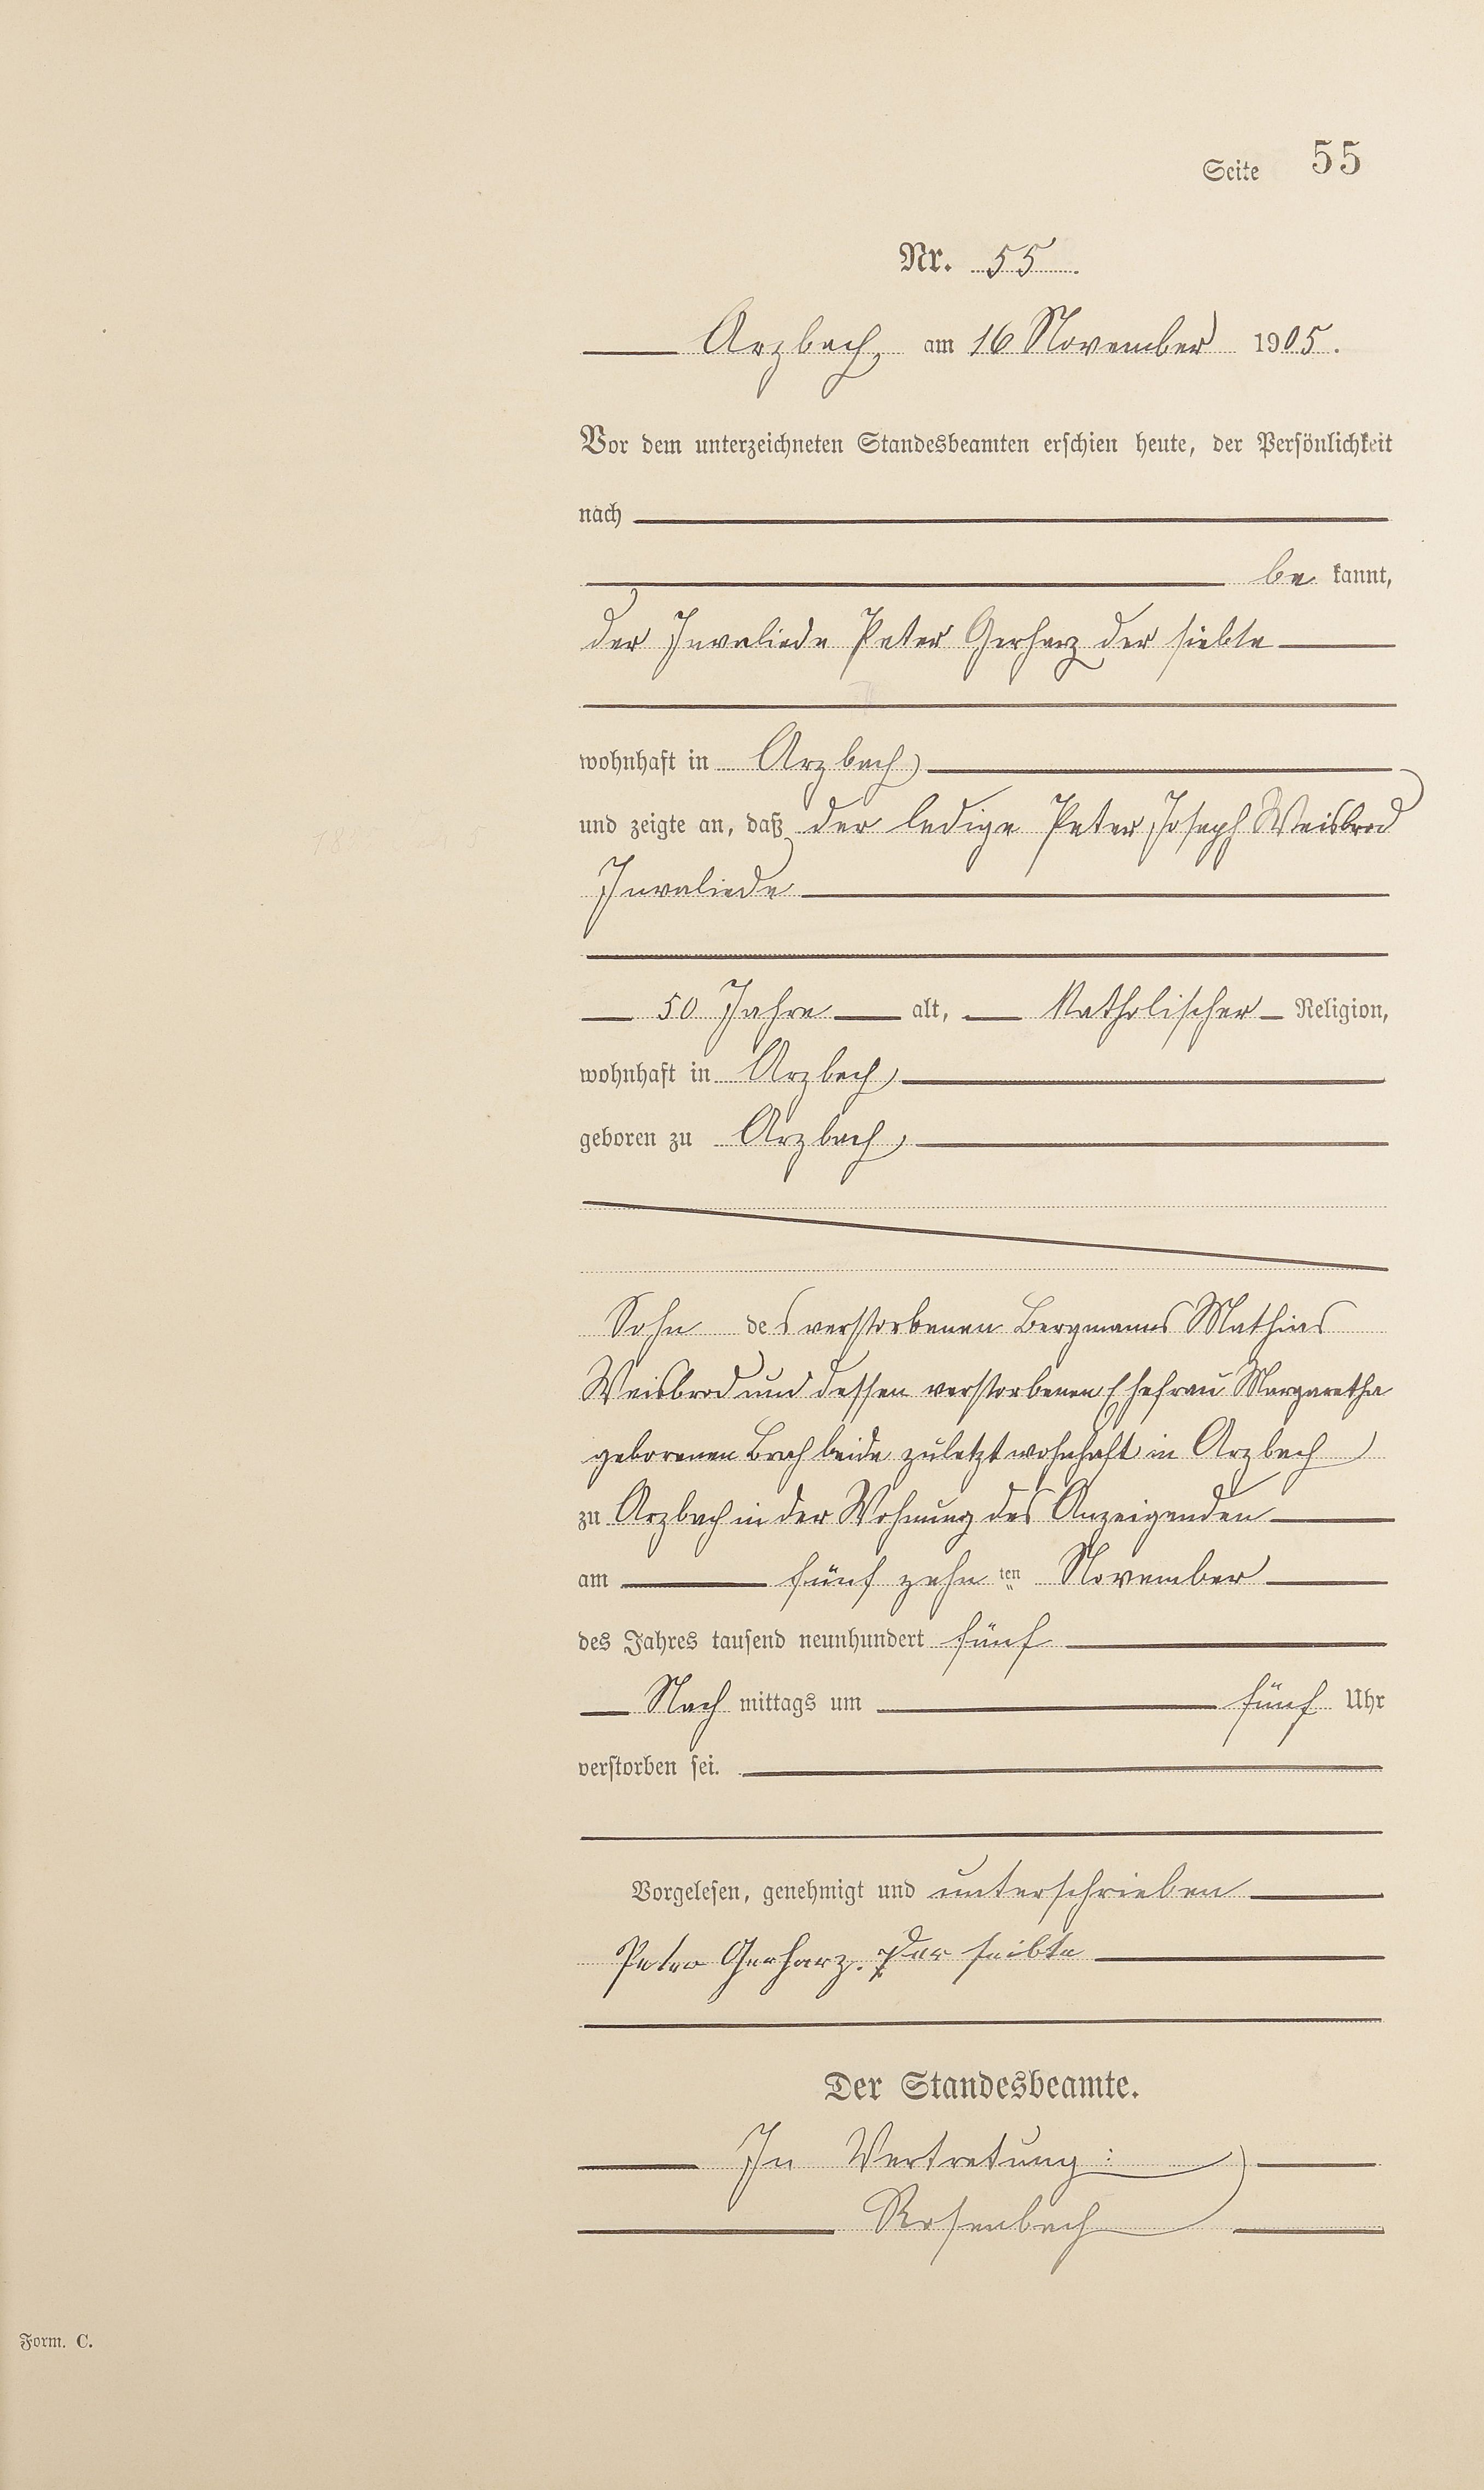 Seite 55
Nr. 55.
Arzbach, am 16 November 1905.
Vor dem unterzeichneten Standesbeamten erschien heute, der Persönlichkeit
nach
be kannt,
der Invaliede Peter Gerharz der siebte
wohnhaft in Arzbach
und zeigte an, daß der ledige Peter Joseph Weisbrod
Invaliede
50 Jahre alt, Katholischer Religion,
wohnhaft in Arzbach
geboren zu Arzbach,
Sohn des verstorbenen Bergmanns Mathias
Weisbrod und dessen verstorbenen Ehefrau Margaretha
geborenen Brach beide zuletzt wohnhaft in Arzbach
zu Arzbach in der Wohnung des Anzeigenden
am fünf zehn ten November
des Jahres tausend neunhundert fünf
Nach mittags um fünf Uhr
verstorben sei.
Vorgelesen, genehmigt und unterschrieben
Peter Gerharz. Der seibte
Der Standesbeamte.
In Vertretung:
Rosenbach
Form. C.